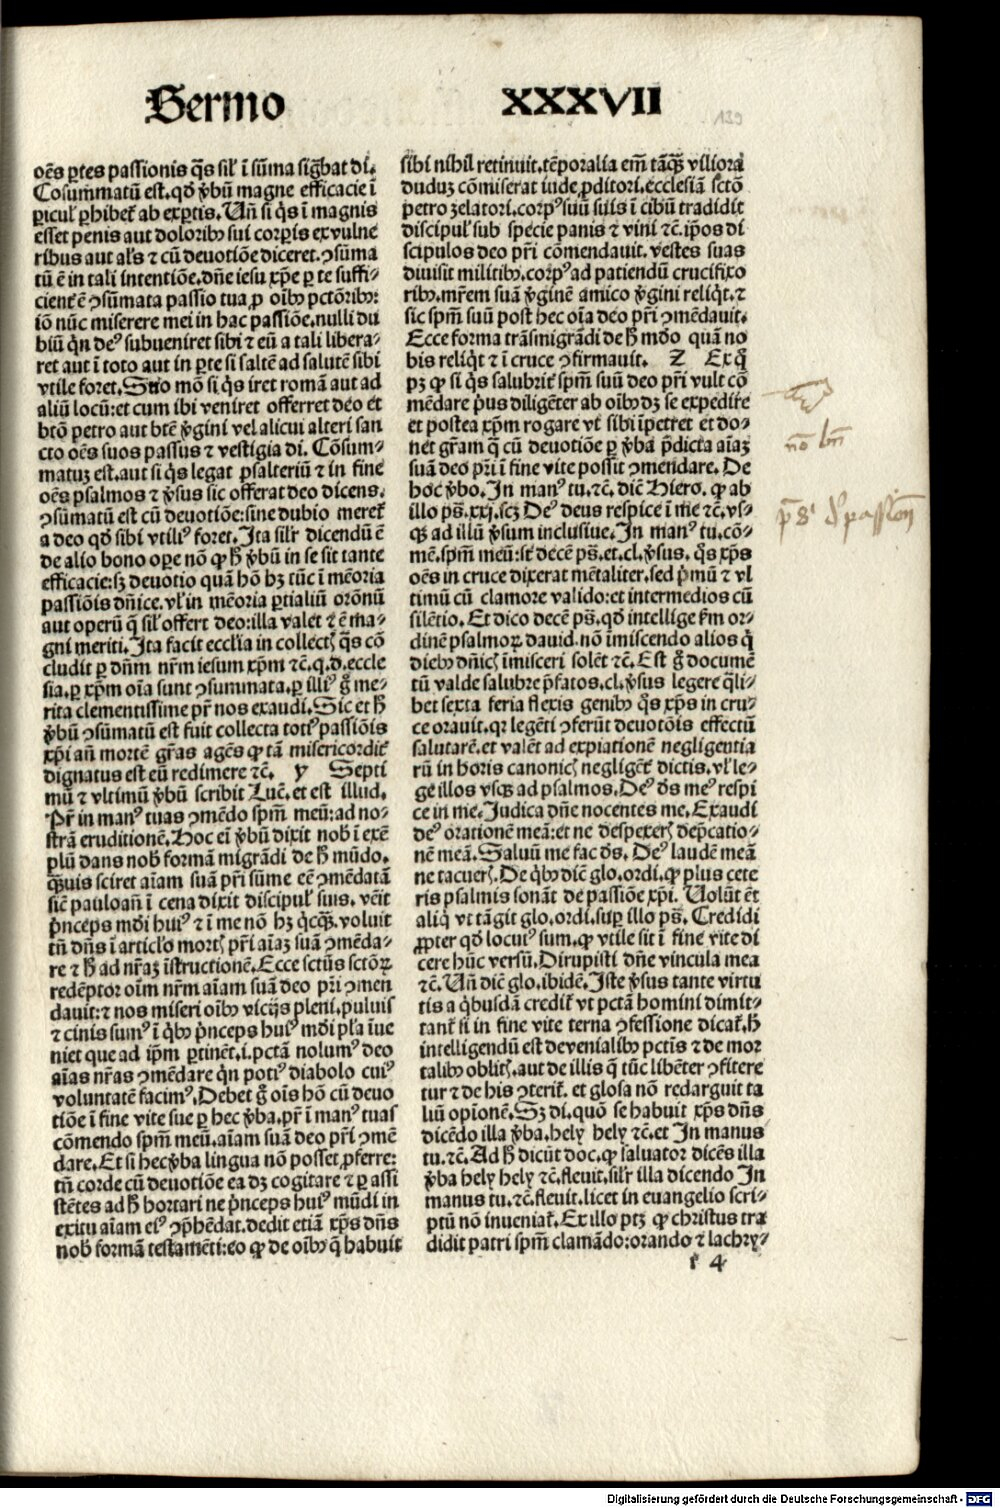 Sermo XXXVII
139
oēs ꝑtes passionis q̄s sil' ī sūma sigb̄at di.
Cōsummatū est. qd̄ v̄bū magne efficacie ī
ꝑicul' ꝑhibet᷑ ab exꝑtis. Uñ si q̄s ī magnis
esset penis aut doloribꝰ sui corꝑis ex vulne
ribus aut al's ⁊ cū deuotiōe diceret. ꝯsūma
tū ē in tali intentiōe. dñe iesu xp̄e ꝑ te suffi⸗
ciente᷑ ē ꝯsūmata passio tua ꝓ oībꝰ pctōribꝰ:
iō nūc miserere mei in hac passiōe. nulli du
biū qͥn deꝰ subueniret sibi ⁊ eū a tali libera⸗
ret aut ī toto aut in ꝑte si saltē ad salutē sibi
vtile foret. Sīo mō si q̄s iret romā aut ad
aliū locū: et cum ibi veniret offerret deo et
btō petro aut btē v̄gini vel alicui alteri san
cto oēs suos passus ⁊ vestigia di. Cōsum⸗
matuꝫ est. aut si q̄s legat psalteriū ⁊ in fine
oēs psalmos ⁊ v̄sus sic offerat deo dicens.
ꝯsūmatū est cū deuotiōe: sine dubio meret᷑
a deo qd̄ sibi vtiliꝰ foret. Ita sil'r dicendū ē
de alio bono oꝑe nō ꝙ h̄ v̄bū in se sit tante
efficacie: sꝫ deuotio quā hō hꝫ tūc ī mēoria
passiōis dñice. vl' in mēoria ꝑtialiū orōnū
aut operū q̄ sil' offert deo: illa valet ⁊ ē ma⸗
gni meriti. Ita facit ecclīa in collectꝭ q̄s cō
cludit ꝑ dñm nr̄m iesum xp̄m ⁊c̄. q. d. eccle
sia. ꝑ xp̄m oīa sunt ꝯsummata. ꝑ illiꝰ g̊ me⸗
rita clementissime pr̄ nos exaudi. Sic et h̄
v̄bū ꝯsūmatū est fuit collecta totiꝰ passiōis
xp̄i añ mortē gr̄as agēs ꝙ tā misericordit᷑
dignatus est eū redimere ⁊c̄. y Septi
mū ⁊ vltimū v̄bū scribit Luc̄. et est illud.
Pr̄ in manꝰ tuas ꝯmēdo spm̄ meū: ad no⸗
strā eruditionē. Hoc eī v̄bū dixit nob̄ ī exē
plū dans nob̄ formā migrādi de h̄ mūdo.
q̄ꝫuis sciret aīam suā pr̄i sūme eē ꝯmēdatā
sic̄ pauloañ ī cena dixit discipul' suis. vēit
p̄nceps mdi huiꝰ ⁊ ī me nō hꝫ qͥcqͣꝫ. voluit
tñ dñs ī articl'o mortꝭ pr̄i aīaꝫ suā ꝯmēda⸗
re ⁊ h̄ ad nr̄aꝫ īstructionē. Ecce sctūs sctōꝝ
redēptor oīm nr̄m aīam suā deo pr̄i ꝯmen
dauit: ⁊ nos miseri oībꝰ vicijs pleni. puluis
⁊ cinis sumꝰ ī qͥbꝰ p̄nceps huiꝰ mdi pl'a īue
niet que ad ip̄m ꝑtinēt. i. pctā nolumꝰ deo
aīas nr̄as ꝯmēdare qͥn potiꝰ diabolo cuiꝰ
voluntatē facimꝰ. Debet g̊ oīs hō cū deuo
tiōe ī fine vite sue ꝑ hec v̄ba. pr̄ ī manꝰ tuas
cōmendo spm̄ meū. aīam suā deo pr̄i ꝯmē
dare. Et si hec v̄ba lingua nō posset ꝓferre:
tñ corde cū deuotiōe ea dꝫ cogitare ⁊ ꝑ assi
stētes ad h̄ hortari ne p̄nceps huiꝰ mūdi in
exitu aīam eiꝰ ꝯp̄hēdat. dedit etiā xp̄s dñs
nob̄ formā testamēti: eo ꝙ de oībꝰ q̄ habuit
sibi nihil retinuit. tēporalia em̄ tāqͣꝫ viliora
duduꝫ cōmiserat iude ꝓditori. ecclesiā sctō
petro zelatori. corpꝰ suū suis ī cibū tradidit
discipul' sub specie panis ⁊ vini ⁊c̄. ip̄os di
scipulos deo pr̄i cōmendauit. vestes suas
diuisit militibꝰ. corpꝰ ad patiendū crucifixo
ribꝰ. mr̄em suā v̄ginē amico v̄gini reliqͥt. ⁊
sic spm̄ suū post hec oīa deo pr̄i ꝯmēdauit.
Ecce forma trāsmigrādi de h̄ mdo quā no
bis reliqͥt ⁊ ī cruce ꝯfirmauit. Z Ex q̄
pꝫ ꝙ si q̄s salubrit᷑ spm̄ suū deo pr̄i vult cō
mēdare pͥus diligēter ab oībꝰ dꝫ se expedire
et postea xp̄m rogare vt sibi īpetret et do⸗
net gr̄am q̄ cū deuotiōe ꝑ v̄ba p̄dicta aīaꝫ
suā deo pr̄i ī fine vite possit ꝯmendare. De
hoc v̄bo. In manꝰ tu. ⁊c̄. dic̄ Hiero. ꝙ ab
illo ps̄. xxj. scꝫ Deꝰ deus respice ī me ⁊c̄. vs⸗
qͣꝫ ad illū v̄sum inclusiue. In manꝰ tu. cō⸗
mē. spm̄ meū: st̄ decē ps̄. et. cl. v̄sus. q̄s xp̄s
oēs in cruce dixerat mētaliter. sed pͥmū ⁊ vl
timū cū clamore valido: et intermedios cū
silētio. Et dico decē ps̄. qd̄ intellige ẜm or⸗
dinē psalmoꝝ dauid. nō īmiscendo alios q̄
diebꝰ dñicꝭ īmisceri solēt ⁊c̄. Est g̊ documē
tū valde salubre p̄fatos. cl. v̄sus legere qͣli⸗
bet sexta feria flexis genibꝰ q̄s xp̄s in cru⸗
ce orauit. qꝛ legēti ꝯferūt deuotōis effectū
salutarē. et valēt ad expiationē negligentia
rū in horis canonicꝭ negligēt᷑ dictis. vl' le⸗
ge illos vsqꝫ ad psalmos. Deꝰ ds̄ meꝰ respi
ce in me. Judica dñe nocentes me. Exaudi
deꝰ orationē meā: et ne despexerꝭ dep̄catio⸗
nē meā. Saluū me fac ds̄. Deꝰ laudē meā
ne tacuerꝭ. De qͥbꝰ dic̄ glo. ordi. ꝙ plus cete
ris psalmis sonāt de passiōe xp̄i. Uolūt et̄
aliqͥ vt tāgit glo. ordi. suꝑ illo ps̄. Credidi
ꝓpter qd̄ locutꝰ sum. ꝙ vtile sit ī fine vite di
cere hūc versū. Dirupisti dñe vincula mea
⁊c̄. Uñ dic̄ glo. ibidē. Iste v̄sus tante virtu
tis a qͥbusdā credit᷑ vt pctā homini dimit⸗
tant᷑ si in fine vite terna ꝯfessione dicat᷑. h̄
intelligendū est de venialibꝰ pctīs ⁊ de mor
talibꝰ oblitꝭ. aut de illis q̄ tūc libēter ꝯfitere
tur ⁊ de his ꝯterit᷑. et glosa nō redarguit ta
liū opīonē. Sꝫ di. quō se habuit xp̄s dñs
dicēdo illa v̄ba. hely hely ⁊c̄. et In manus
tu. ⁊c̄. Ad h̄ dicūt doc. ꝙ saluator dicēs illa
v̄ba hely hely ⁊c̄. fleuit. sil'r illa dicendo In
manus tu. ⁊c̄. fleuit. licet in euangelio scri⸗
ptū nō inueniat᷑. Ex illo ptꝫ ꝙ christus tra
didit patri spm̄ clamādo: orando ⁊ lachry⸗
r 4
Digitalisierung gefördert durch die Deutsche Forschungsgemeinschaft - DFG